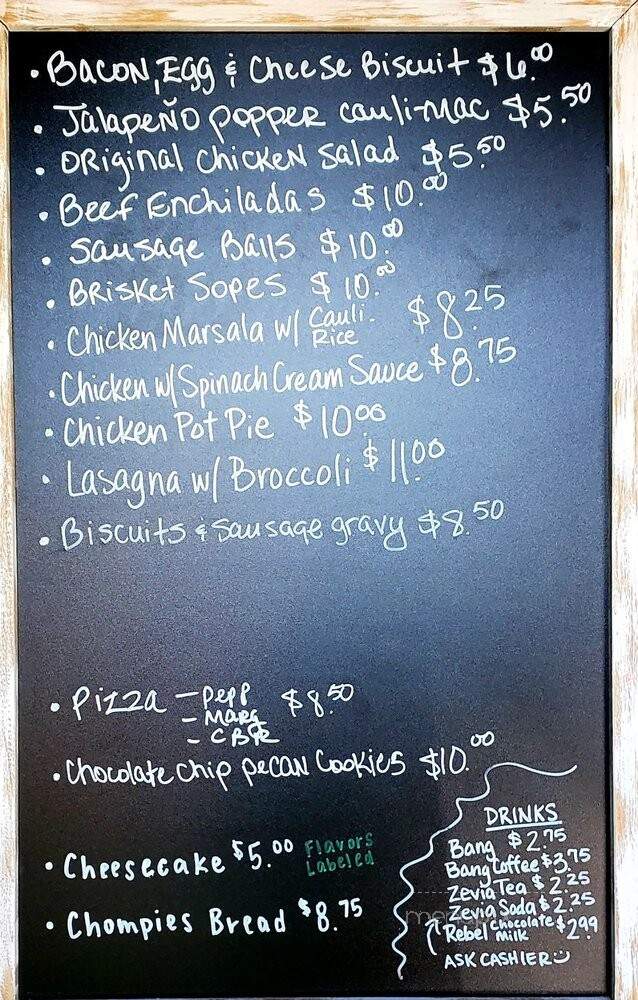 • Bacon, Egg & Cheese Biscuit $6.00
• Jalapeño popper cauli-mac $5.50
• Original Chicken Salad $5.50
• Beef Enchiladas $10.00
• Sausage Balls $10.00
• Brisket Sopes $10.00
• Chicken Marsala w/ Cauli. Rice $8.25
• Chicken w/ Spinach Cream Sauce $8.75
• Chicken Pot Pie $10.00
• Lasagna w/ Broccoli $11.00
• Biscuits & Sausage gravy $8.50
• Pizza – Pepp $8.50
– Marg
– CBR
• Chocolate chip pecan Cookies $10.00
• Cheesecake $5.00 Flavors Labeled
• Chompies Bread $8.75
DRINKS
Bang $2.75
Bang Coffee $3.75
Zevia Tea $2.25
Zevia Soda $2.25
Rebel chocolate milk $2.99
ASK CASHIER